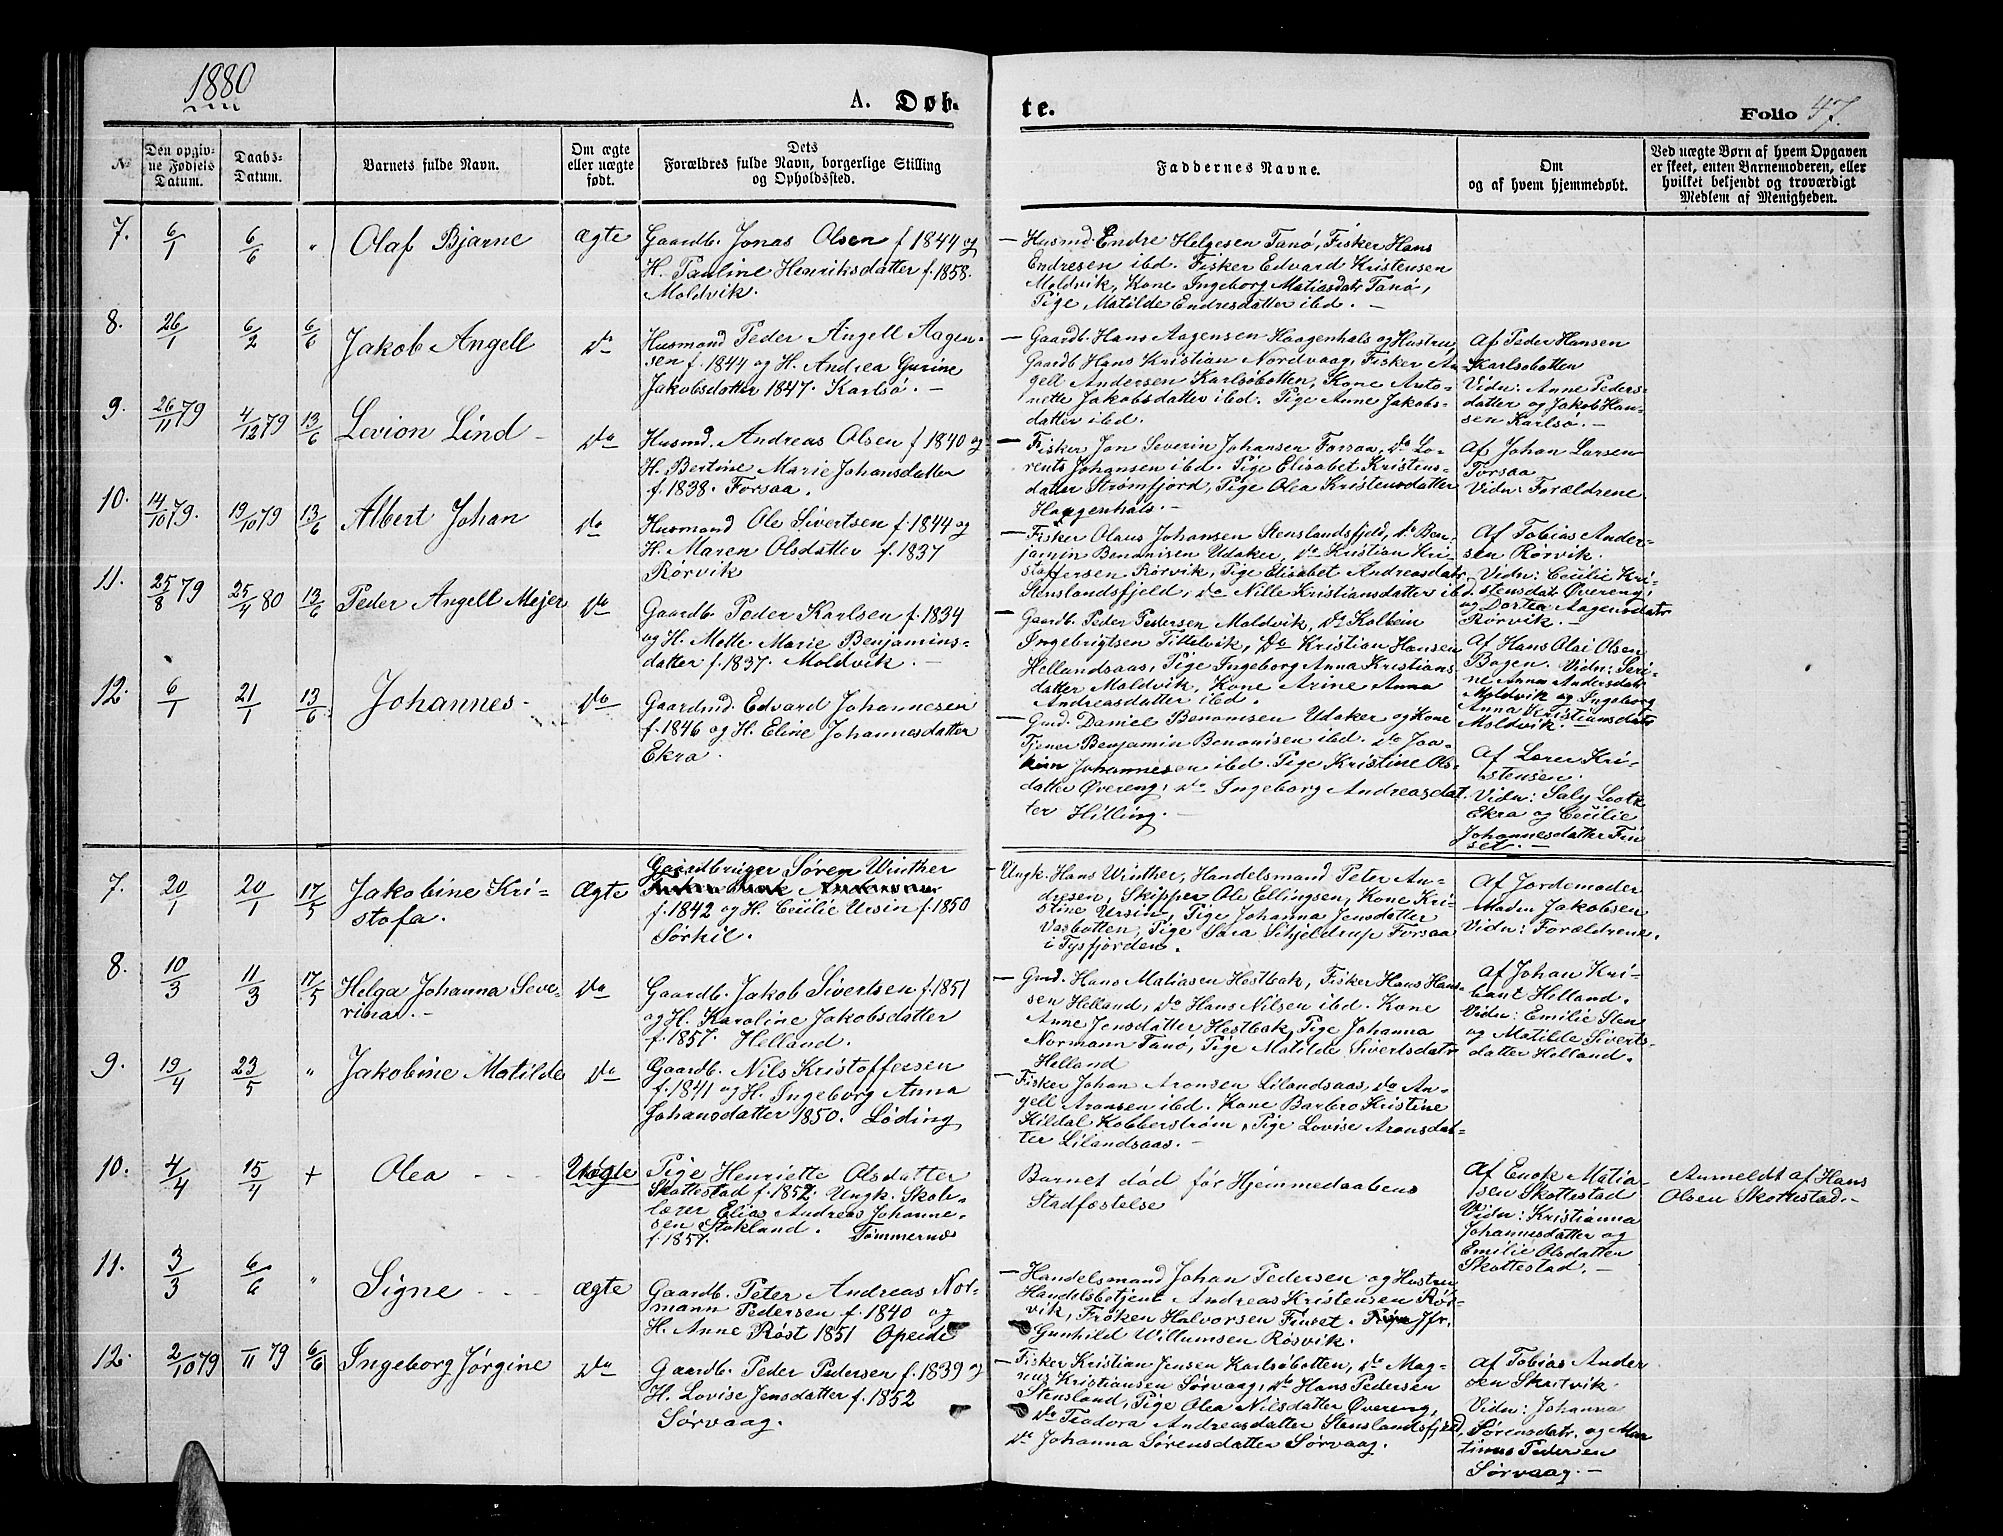 1880
A. Døb- te.
Folio 47.
No
Den opgiv-
ne Fødsels
Datum.
Daabs-
Datum.
Barnets fulde Navn.
Om ægte
eller uægte
født.
Dets
Forældres fulde Navn, borgerlige Stilling
og Opholdssted.
Faddernes Navne.
Om
og af hvem hjemmedøbt.
Ved uægte Børn af hvem Opgaven
er skeet, enten Barnemoderen, eller
hvilket bekjendt og troværdigt
Medlem af Menigheden.
7. 6/1 6/6 " Olaf Bjarne ægte
Gaardb. Jonas Olsen f. 1844 og
H. Pauline Henriksdatter f. 1858.
Moldvik.
— Husmd Endre Helgesen Tanø, Fisker Hans
Endresen ibd. Fisker Edvard Kristensen
Moldvik, Kone Ingeborg Matiasdatr Tanø,
Pige Matilde Endresdatter ibd. —
8. 26/1 6/2 6/6 Jakob Angell do
Husmand Peder Angell Aagen-
sen f. 1844 og H. Andrea Gurine
Jakobsdatter 1847. Karlsø. —
— Gaardb. Hans Aagensen Haagenhals og Hustru
Gaardb Hans Kristian Nordvaag, Fisker An-
gell Andersen Karlsøbotten, Kone Anto-
nette Jakobsdatter ibd. Pige Anne Jakobs-
datter ibd.
Af Peder Hansen
Karlsobotten
Vidn: Anne Peders-
datter og Jakob Han-
sen Karlsø. —
9. 26/11 79 4/12 79 13/6 Levion Lind — do
Husmd. Andreas Olsen f. 1840 og
H. Bertine Marie Johansdatter
f. 1838. Forsaa.
— Fisker Jon Severin Johansen Forsaa, do Lo-
rents Johansen ibd. Pige Elisabet Kristens-
datter Strømfjord, Pige Olea Kristensdatter
Haagenhals. —
Af Johan Larsen
Forsaa
Vidn: Forældrene
10. 14/10 79. 19/10 79 13/6 Albert Johan do
Husmand Ole Sivertsen f. 1844 og
H. Maren Olsdatter f. 1837
Rørvik
— Fisker Olaus Johansen Stenslandsfjeld, do Ben-
jamin Benonisen Udaker, do Kristian Kri-
stoffersen Rørvik, Pige Elisabet Andreasdatr
Stenslandsfjeld, do Nille Kristiansdatter ibd.
Af Tobias Ander-
sen Rørvik.
Vidn: Cecilie Kri-
stensdat. Øvereng,
og Dortea Aagensdatr
Rørvik. —
11. 25/8 79 25/4 80 13/6 Peder Angell Mejer do
Gaardb. Peder Karlsen f. 1834
og H. Mette Marie Benjamins-
datter f. 1837. Moldvik. —
— Gaardb. Peder Pedersen Moldvik, do Kolbein
Ingebrigtsen Tittelvik, do Kristian Hansen
Hellandsaas, Pige Ingeborg Anna Kristians
datter Moldvik, Kone Arine Anna
Andreasdatter ibd.
Af Hans Olai Olsen
Bogen. Vidn: Seri-
ne Anna Andersdatr
Moldvik og Ingeborg
Anna Kristiansdatr
Moldvik. —
12. 6/1 21/1 13/6 Johannes. do
Gaardmd. Edvard Johannesen
f. 1846 og H. Eline Johannesdatter
Ekra.
— Gmd. Daniel Benonisen Udaker og Kone
Tjener Benjamin Benonisen ibd. do Joa-
kim Johannesen ibd. Pige Kristine Ols-
datter Øvereng, do Ingeborg Andreasdat-
ter Hilling. —
Af Lærer Kri-
stensen.
Vidn: Saly Lootz
Ekra og Cecilie
Johannesdatter Fin-
set. —
7. 20/1 20/1 17/5 Jakobine Kri-
stofa. Ægte
Gaardbruger Søren Winther
f. 1842 og H. Cecilie Ursin f. 1850
Sørkil.
Ungk. Hans Winther, Handelsmand Peter An-
dresen, Skipper Ole Ellingsen, Kone Kri-
stine Ursin, Pige Johanna Jensdatter
Vasbotten, Pige Sara Schjeldrup Forsaa
i Tysfjorden.
Af Jordemoder
Maden Jakobsen
Vidn: Forældrene.
8. 10/3 11/3 17/5 Helga Johanna Seve-
rina. — do
Gaardb. Jakob Sivertsen f. 1851
og H. Karoline Jakobsdatter
f. 1857. Helland.
— Gmd. Hans Matiasen Hestbak, Fisker Hans Han-
sen Helland, do Hans Nilsen ibd. Kone
Anne Jensdatter Hestbak, Pige Johanna
Normann Tanø, Pige Matilde Sivertsdatr
Helland
Af Johan Kri-
bant Helland.
Vidn: Emilie Sten
og Matilde Siverts-
datter Helland.
9. 19/4 23/5 " Jakobine Matilde do
Gaardb. Nils Kristoffersen
f. 1841 og H. Ingeborg Anna
Johansdatter 1850. Løding
— Fisker Johan Aronsen Lilandsaas, do An-
gell Aronsen ibd. Kone Barbro Kristine
Kildal Kobberstrøm, Pige Lovise Aronsdat-
ter Lilandsaas. —
10. 4/4 15/4 + Olea Uægte
Pige Henriette Olsdatter
Skottestad f. 1852. Ungk. Skole-
lærer Elias Andreas Johanne-
sen Stokland. Tømmernæs
f. 1857.
Barnet død før Hjemmedaabens
Stadfæstelse
Af Enok Matia-
sen Skottestad
Vidn: Kristianna
Johannesdatter og
Emilie Olsdatter
Skottestad. —
Anmeldt af Hans
Olsen Skottestad. —
11. 3/3 6/6 " Signe ægte
Gaardb. Peter Andreas Nor-
mann Pedersen f. 1840 og
H. Anne Røst 1851 Opeide
— Handelsmand Johan Pedersen og Hustru
Handelsbetjent Andreas Kristensen Rør-
vik, Frøken Halvorsen Finset. Jfr.
Gunhild Willumsen Røsvik.
12. 2/10 79 /11 79 6/6 Ingeborg Jørgine do
Gaardb. Peder Pedersen f. 1839 og
H. Lovise Jensdatter f. 1852
Sørvaag.
— Fisker Kristian Jensen Karlsøbotten, do Mag-
nus Kristiansen Sørvaag, do Hans Pedersen
Stensland, Pige Olea Nilsdatter Øvereng,
do Teadora Andreasdatter Stenslandsfjeld,
do Johanna Sørensdatter Sørvaag.
Af Tobias Ander
sen Skarvik.
Vidn: Johanna
Sørensdatr. og Mar
tinus Pedersen
Sørvaag. —